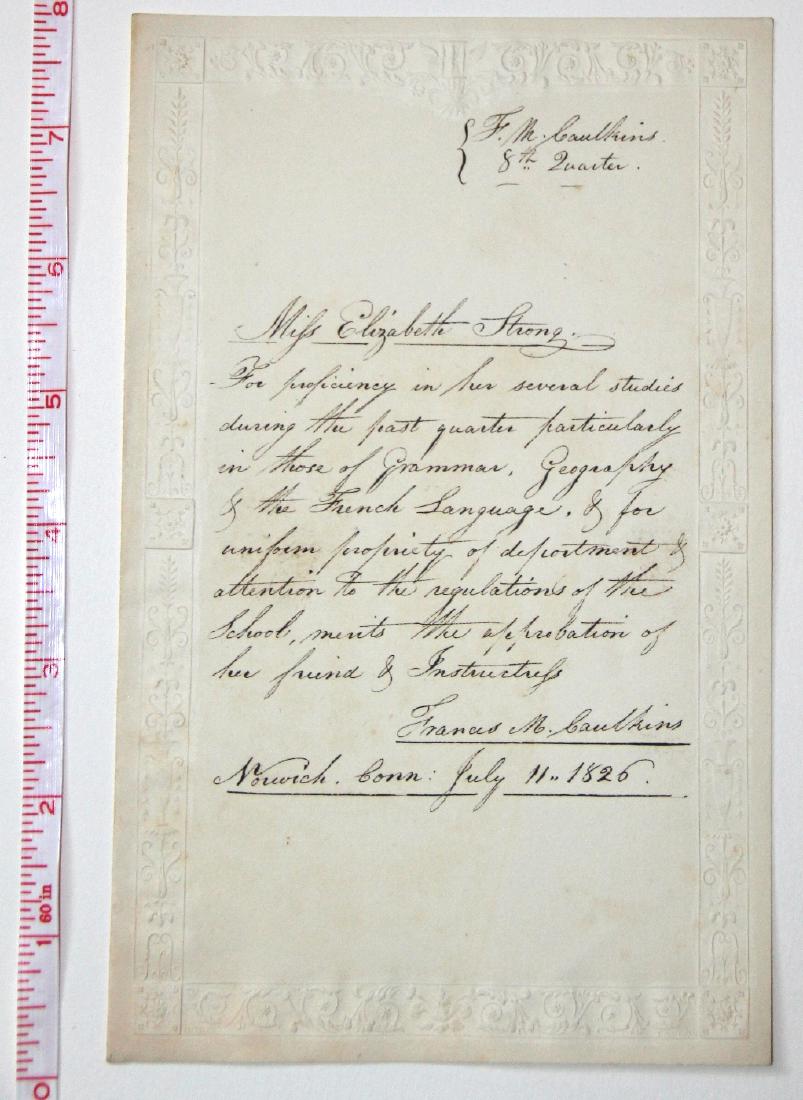 F. M. Caulkins.
8th Quarter.
Miss Elizabeth Strong.
For proficiency in her several studies
during the past quarter particularly
in those of Grammar, Geography
& the French Language, & for
uniform propriety of deportment &
attention to the regulations of the
School, merits the approbation of
her friend & Instructress
Frances M. Caulkins
Norwich. Conn: July 11.. 1826.
8
7
6
5
4
3
2
1
60 in
0